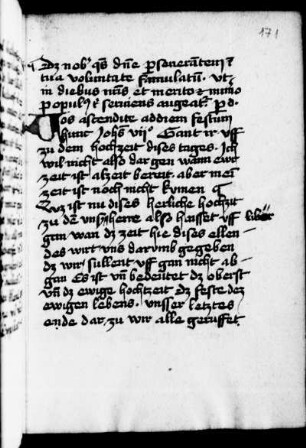 171
Dz nob' qs dn̄e pseuerātem ī
tua voluntate famulatū. vt
in diebus nr̄is et merito & numo
popul9 t' seruiens augeat'. p d.
Uos ascendite ad diem festum
hunc Joh̄s vij° Gant ir vff
zu dem hochzeit dises tages. Ich
wil nicht also dar gen wann ewr
zeit ist alzeit bereit. aber mei
zeit ist noch nicht kumen
ist nu dises herliche hochzit
zu dr̄ vnser herre also haisset vff
gan wan dz zeit hie dises ellen-
des wirt vns darumb gegeben
dz wir sullent vff gan nicht ab-
gan Es ist vn̄ bedeutet dz oberst
vn̄ dz ewige hochzeit dz feste dez
ewigen lebens. vnsser letztes
ende dar zu wir alle geruffet